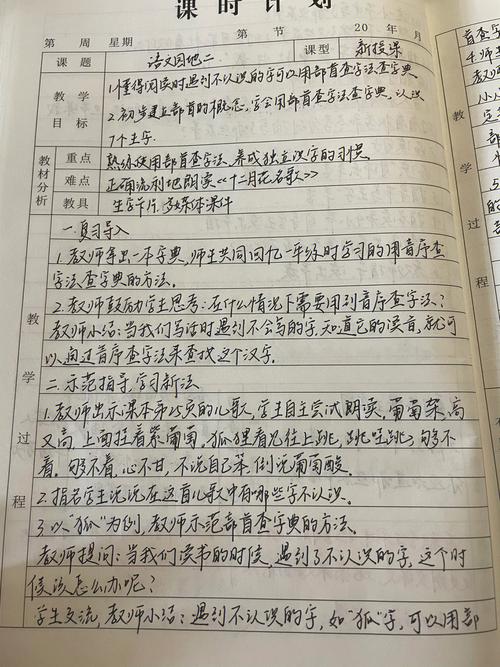 课时计划
第 周 星期 第 节 20 年 月
课题 语文园地二 课型 新授课
教学目标
1.懂得阅读时遇到不认识的字可以用部首查字法查字典
2.初步建立部首的概念,学会用部首查字法查字典,认识
7个生字.
教材分析
重点 熟练使用部首查字法,养成独立识字的习惯.
难点 正确流利地朗读《十二月花名歌》
教具 生字卡片,多媒体课件
教学过程
一.复习导入
1.教师拿出一本字典,师生共同回忆一年级时学习的用音序查
字法查字典的方法.
2.教师鼓励学生思考:在什么情况下需要用到音序查字法?
教师小结:当我们写话时遇到不会写的字,知道它的读音,就可
以通过音序查字法来查找这个汉字.
二.示范指导,学习新法
1.教师出示课本第25页的儿歌,学生自主尝试朗读,葡萄架,高
又高,上面挂着紫葡萄,狐狸看见往上跳,跳呀跳,够不
着,够不着,心不甘,不说自己笨,倒说葡萄酸.
2.指名学生说说在这首儿歌中有哪些字不认识.
3.以“狐”为例,教师示范部首查字典的方法.
教师提问:当我们读书的时候,遇到了不认识的字,这个时
候该怎么办呢?
学生交流,教师小结:遇到不认识的字,如“狐”字,可以用部